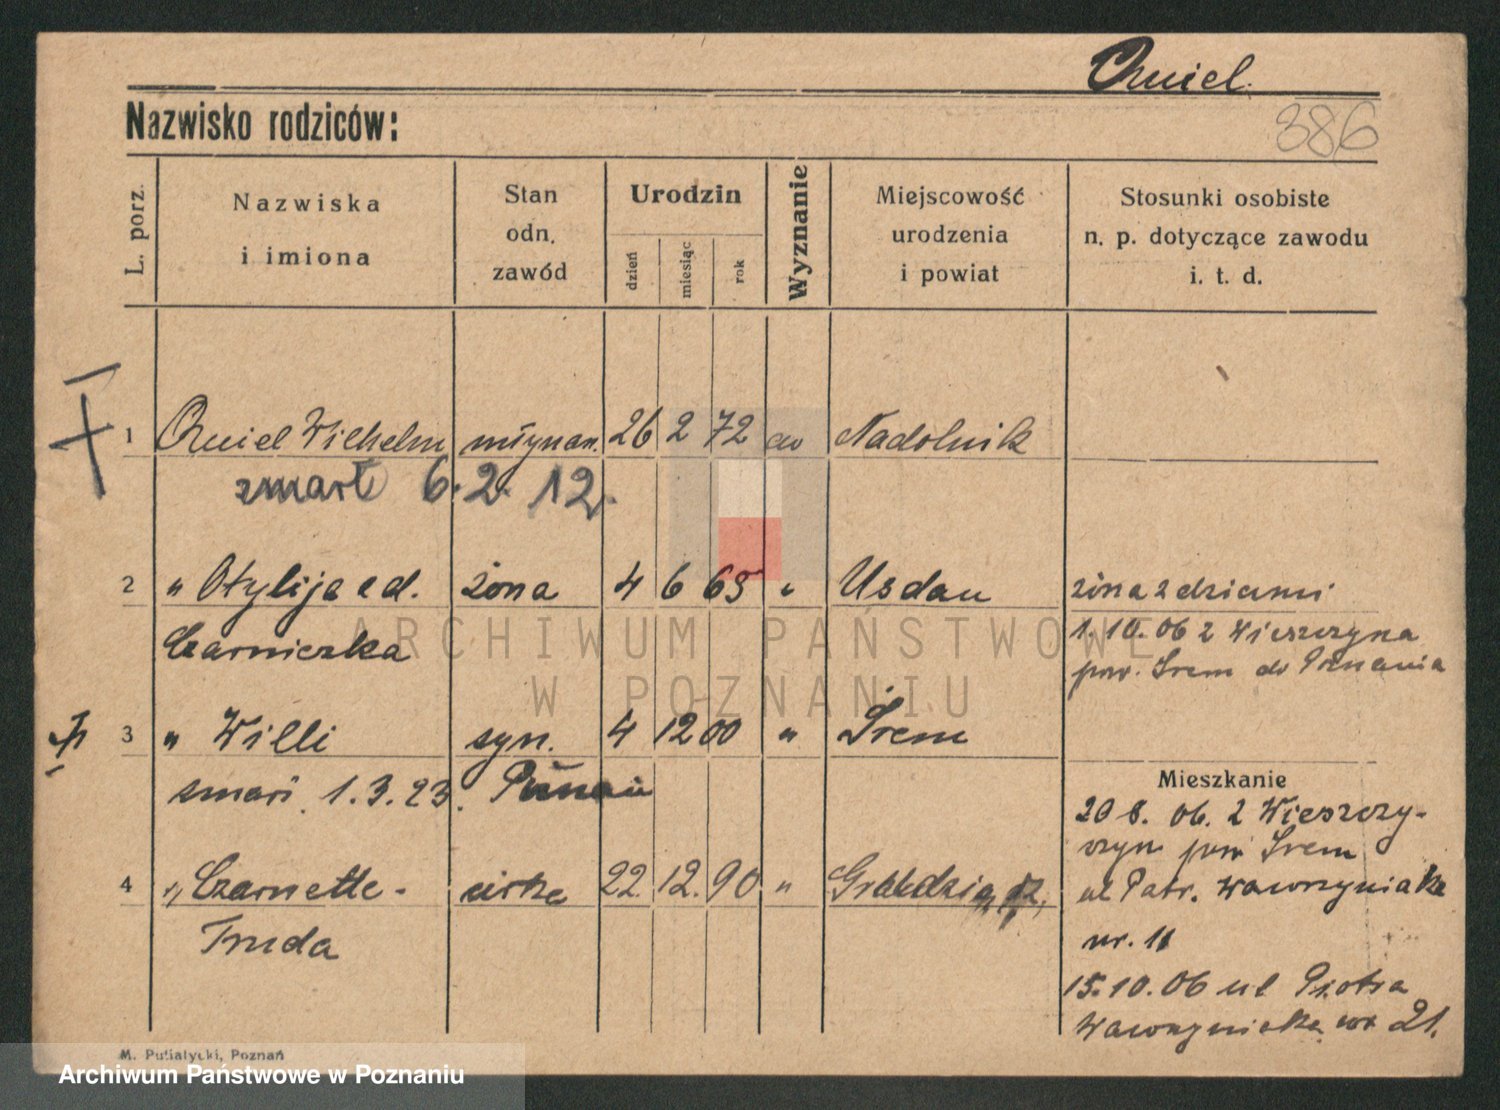 Chmiel.
Nazwisko rodziców:
386
L. porz.
Nazwiska
i imiona
Stan
odn.
zawód
Urodzin
dzień
miesiąc
rok
Wyznanie
Miejscowość
urodzenia
i powiat
Stosunki osobiste
n. p. dotyczące zawodu
i. t. d.
1 Chmiel Wilhelm młynarz. 26 2 72 ew Nadolnik
zmarł 6. 2. 12.
2 " Otylija z d. żona 4 6 65 " Usdau żona z dziećmi
Czarniezka 1. 10. 06 z Wieszczyna
pow. Śrem do Poznania
3 " Willi syn. 4 12 00 " Śrem
zmarł 1. 3. 23. Poznań
Mieszkanie
20 8. 06. z Wieszczy-
czyn pow Śrem
4 " Czarnette- córka 22. 12. 90 " Grudziądz, ul Patr. Wawrzyniaka
Truda nr. 11
15. 10. 06 ul Piotra
Wawrzyniaka nr 21.
M. Putiatycki, Poznań
ARCHIWUM PAŃSTWOWE
W POZNANIU
Archiwum Państwowe w Poznaniu